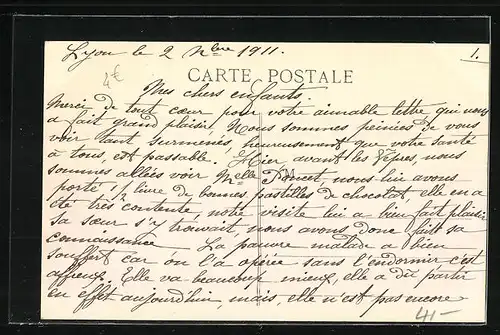 Lyon le 2 Nbre 1911.
1.
4€
CARTE POSTALE
Mes chers enfants.
Merci de tout cœur pour votre aimable lettre qui nous
a fait grand plaisir. Nous sommes peinées de vous
voir tant surménés, heureusement que votre santé
à tous, est passable. Hier, avant les Vêpres, nous
sommes allées voir Melle Poncet, nous lui avons
porté 1/2 livre de bonnes pastilles de chocolat, elle en a
été très contente, notre visite lui a bien fait plaisir
sa sœur s'y trouvait nous avons donc fait sa
connaissance. La pauvre malade a bien
souffert car on l'a opérée sans l'endormir c'est
affreux. Elle va beaucoup mieux, elle a dit partir
en effet aujourd'hui, mais, elle n'est pas encore
41-